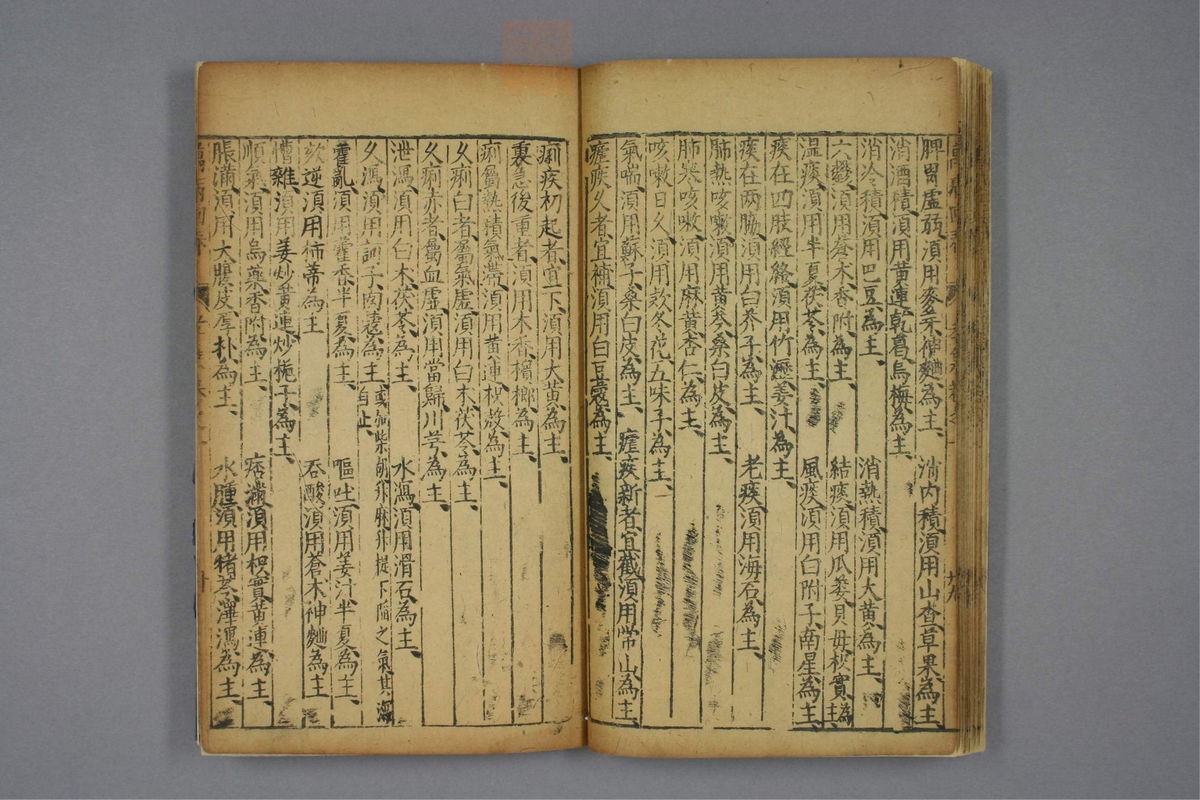 脾胃虛弱須用麥芽神麯為主、 消內積須用山查草果為主、
消酒積須用黃連乾葛烏梅為主、
消冷積須用巴豆為主、 消熱積須用大黃為主、
六鬱須用蒼术香附為主、 結痰須用瓜蔞貝毋枳實為主、
濕痰須用半夏茯苓為主、 風痰須用白附子南星為主、
痰在四肢經絡須用竹瀝姜汁為主、
痰在两脇須用白芥子為主、 老痰須用海石為主、
肺熱咳嗽須用黃芩桑白皮為主、
肺寒咳嗽須用麻黃杏仁為主、
咳嗽日久須用款冬花五味子為主、
氣喘須用蘇子桑白皮為主、 瘧疾新者宜截須用常山為主、
瘧疾久者宜補須用白豆蔻為主、
痢疾初起者宜下須用大黃為主、
裏急後重者須用木香檳榔為主、
痢屬熱積氣滯須用黃連枳殻為主、
久痢白者屬氣虛須用白术茯苓為主、
久痢赤者屬血虛須用當歸川芎為主、
泄瀉須用白术茯苓為主、 水瀉須用滑石為主、
久瀉須用訶子肉蔻為主、或加柴胡升麻升提下陷之氣其瀉自止、
霍亂須用藿香半夏為主、 嘔吐須用姜汁半夏為主、
欬逆須用柿蒂為主 吞酸須用蒼术神麯為主
嘈雜須用姜炒黃連炒梔子為主、
順氣須用烏藥香附為主、 痞滿須用枳實黃連為主、
脹滿須用大腹皮厚朴為主、 水腫須用猪苓澤瀉為主、